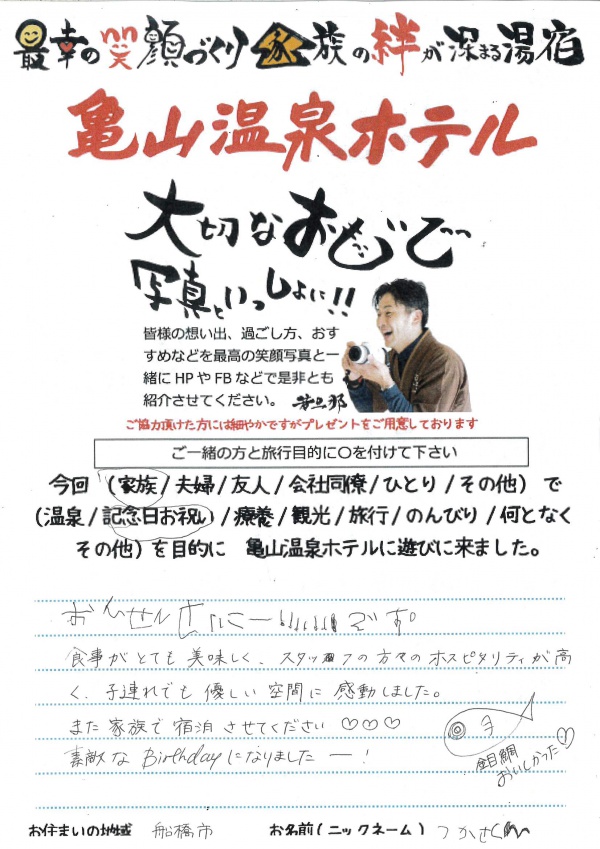 最幸の笑顔づくり 家族の絆が深まる湯宿
亀山温泉ホテル
大切なおもいで
写真といっしょに!!
皆様の想い出、過ごし方、おす
すめなどを最高の笑顔写真と一
緒に HP や FB などで是非とも
紹介させてください。 若旦那
ご協力頂けた方には細やかですがプレゼントをご用意しております
ご一緒の方と旅行目的に○を付けて下さい
今回 (家族/夫婦/友人/会社同僚/ひとり/その他) で
(温泉/記念日お祝い/療養/観光/旅行/のんびり/何となく
その他) を目的に 亀山温泉ホテルに遊びに来ました。
おんせん ー!!!!!!!です。
食事がとても美味しく、スタッフの方々のホスピタリティが高
く、子連れでも優しい空間に感動しました。
また家族で宿泊させてください♡♡♡
素敵なBirthdayになりましたー!
金目鯛
おいしかった♡
お住まいの地域 船橋市 お名前(ニックネーム) つかさくん